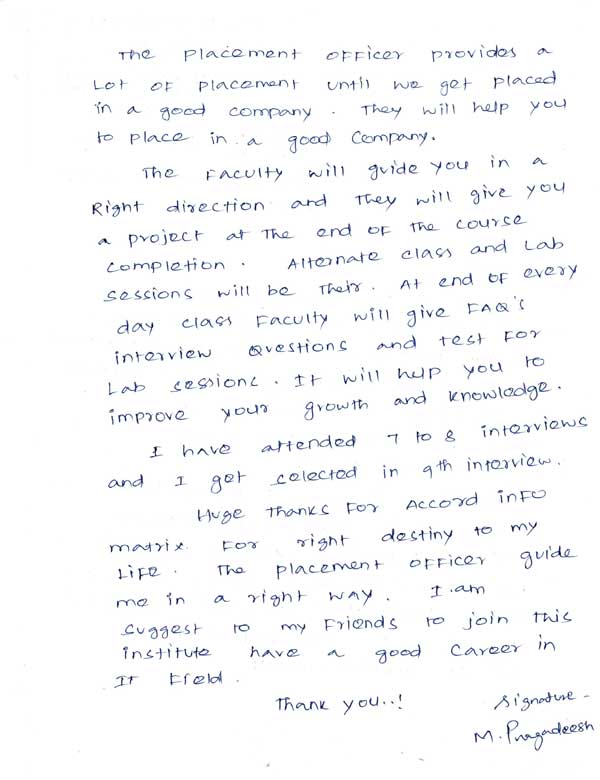 The placement officer provides a
Lot of placement until we get placed
in a good company. They will help you
to place in a good Company.
The Faculty will guide you in a
Right direction and They will give you
a project at The end of The course
completion. Alternate class and Lab
sessions will be Their. At end of every
day class Faculty will give FAQ's
interview Questions and test For
Lab sessions. It will help you to
improve your growth and knowledge.
I have attended 7 to 8 interviews
and I get selected in 9th interview.
Huge Thanks For Accord info
matrix For right destiny to my
Life. The placement officer guide
me in a right way. I am
suggest to my Friends to join This
institute have a good Career in
IT Field.
Thank you..!
Signature -
M. Pragadeesh